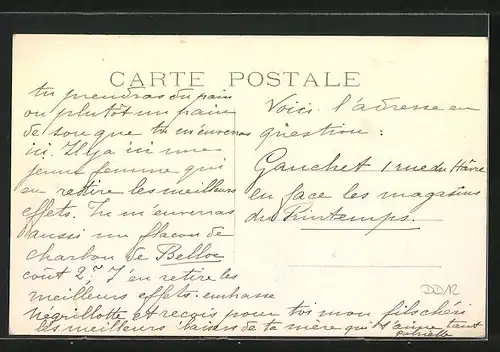 CARTE POSTALE
tu prendras du pain
ou plutôt un pain
de son que tu m'enverras
ici. Il y a ici une
jeune femme qui
en retire les meilleurs
effets. Tu m'enverras
aussi un flacon de
charbon de Belloc
coût 2,". J'en retire les
meilleurs effets. embrasse
Négrillotte et reçois pour toi mon fils chéri
les meilleurs baisers de ta mère qui t'aime tant
Voici l'adresse en
question :
Gauchet 1 rue du Hâvre
en face les magasins
du Printemps.
DD12